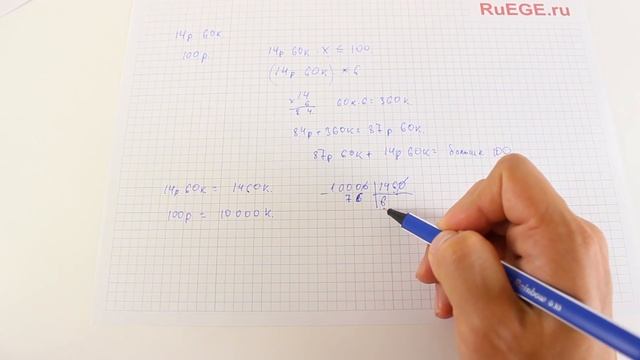 RuEGE.ru
14р 60к
100р.
14р 60к · x ≤ 100
(14р 60к) × 6
× 14
6
8 4
60к·6 = 360к
84р + 360к = 87р 60к.
87р 60к + 14р 60к = больше 100
14р 60к = 1460к.
100р = 10000к.
- 10000 | 1460
7 6 | 6